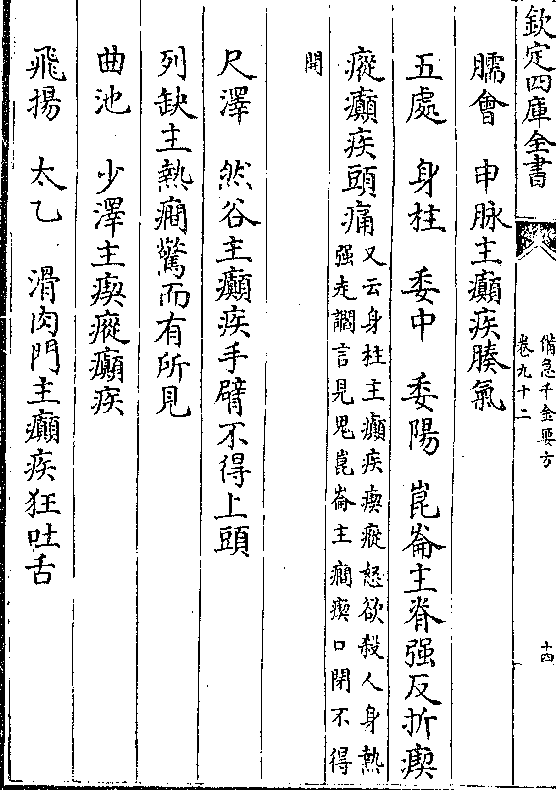 欽定四庫全書
備急千金要方
卷九十二
十四
臑會　申脉主癲疾腠氣
五處　身柱　委中　委陽　崑崙主脊强反折瘈
瘲癲疾頭痛又云身柱主癲疾瘈瘲怒欲殺人身熱
强走讝言見鬼崑崙主癇瘈口閉不得
開
尺澤　然谷主癲疾手臂不得上頭
列缺主熱癇驚而有所見
曲池　少澤主瘈瘲癲疾
飛揚　太乙　滑肉門主癲疾狂吐舌